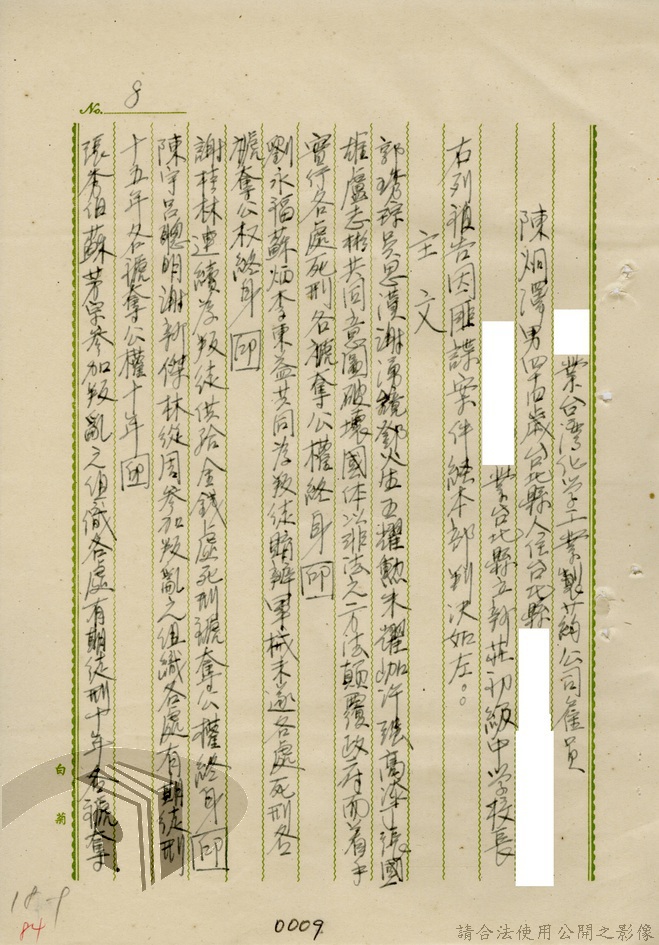 No. 8
業台湾化学工業製葯公司雇員
陳炯澤男四十四歲台北縣人住台北縣
業台北縣立新莊初級中学校長
右列被告因匪諜案件經本部判決如左。
主文
郭琇琮吳思漢謝湧鏡鄧火生王耀勲朱耀珈許强高添丁張國
雄盧志彬共同意圖破壞國体以非法之方法顛覆政府而着手
實行各處死刑各褫奪公權終身 印
劉永福蘇炳李東益共同為叛徒購辦軍械未遂各處死刑各
褫奪公权終身 印
謝桂林連續為叛徒供給金錢處死刑褫奪公權終身 印
陳宇呂聰明謝新傑林從周參加叛亂之組織各處有期徒刑
十五年各褫奪公權十年 印
張參伯蘇芳宗參加叛亂之組織各處有期徒刑十年各褫奪
白菊
18-9
84
0009
請合法使用公開之影像